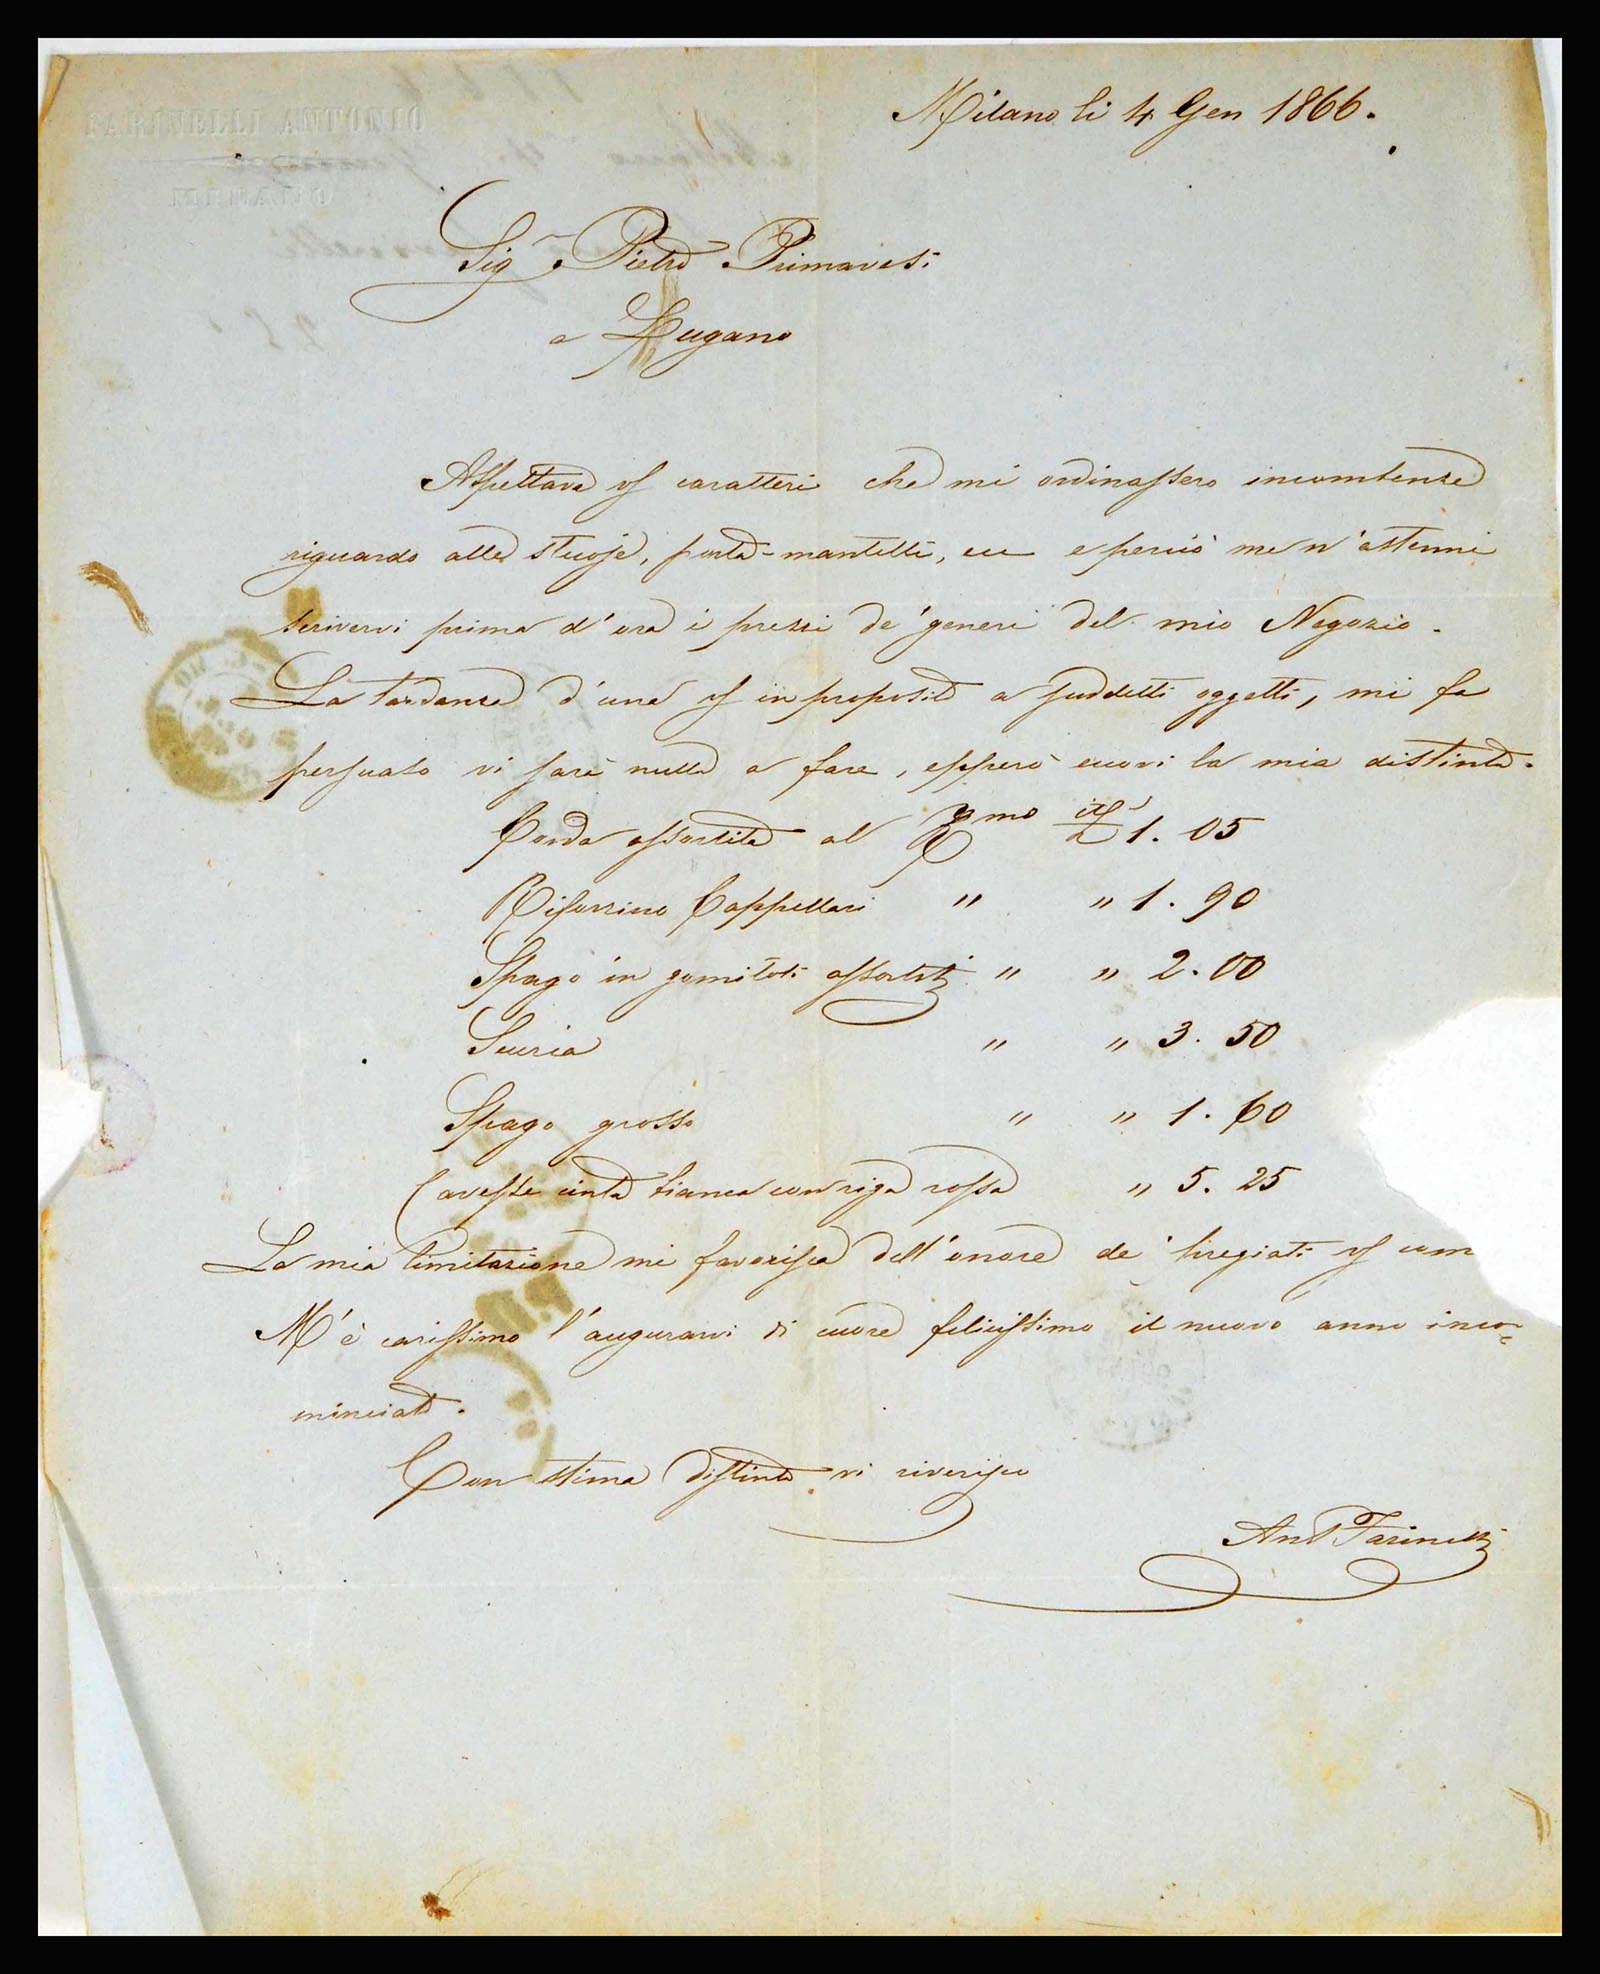 FARINELLI ANTONIO
MILANO
Milano li 4 Gen 1866.
Sigr Pietro Primavesi
a Lugano
Aspettava vs caratteri che mi ordinassero incombenze
riguardo alle stuoje, porta-mantelli, ecc e perciò me n'astenni
scrivervi prima d'ora i prezzi de' generi del mio Negozio.
La tardanza d'una vs in proposito a suddetti oggetti, mi fa
persuaso vi sarà nulla a fare, epperò eccovi la mia distinta.
Corda assortita al itL 1.05
Riforzino Cappellari " " 1.90
Spago in gomitoli assortiti " " 2.00
" " 3.50
Spago grosso " " 1.60
Cavezze cinta bianca con riga rossa " 5.25
La mia limitazione mi favorisca dell'onore de' pregiati vs com
M'è carissimo l'augurarvi di cuore felicissimo il nuovo anno inco-
minciato.
Con stima distinta vi riverisco
Ant Farinelli